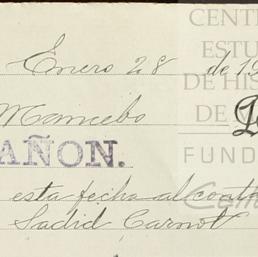 Enero 28 de 19
Mancebo
AÑON.
esta fecha al conta
Sadid Carnot
CENT
ESTU
DE HIS
DE
FUND